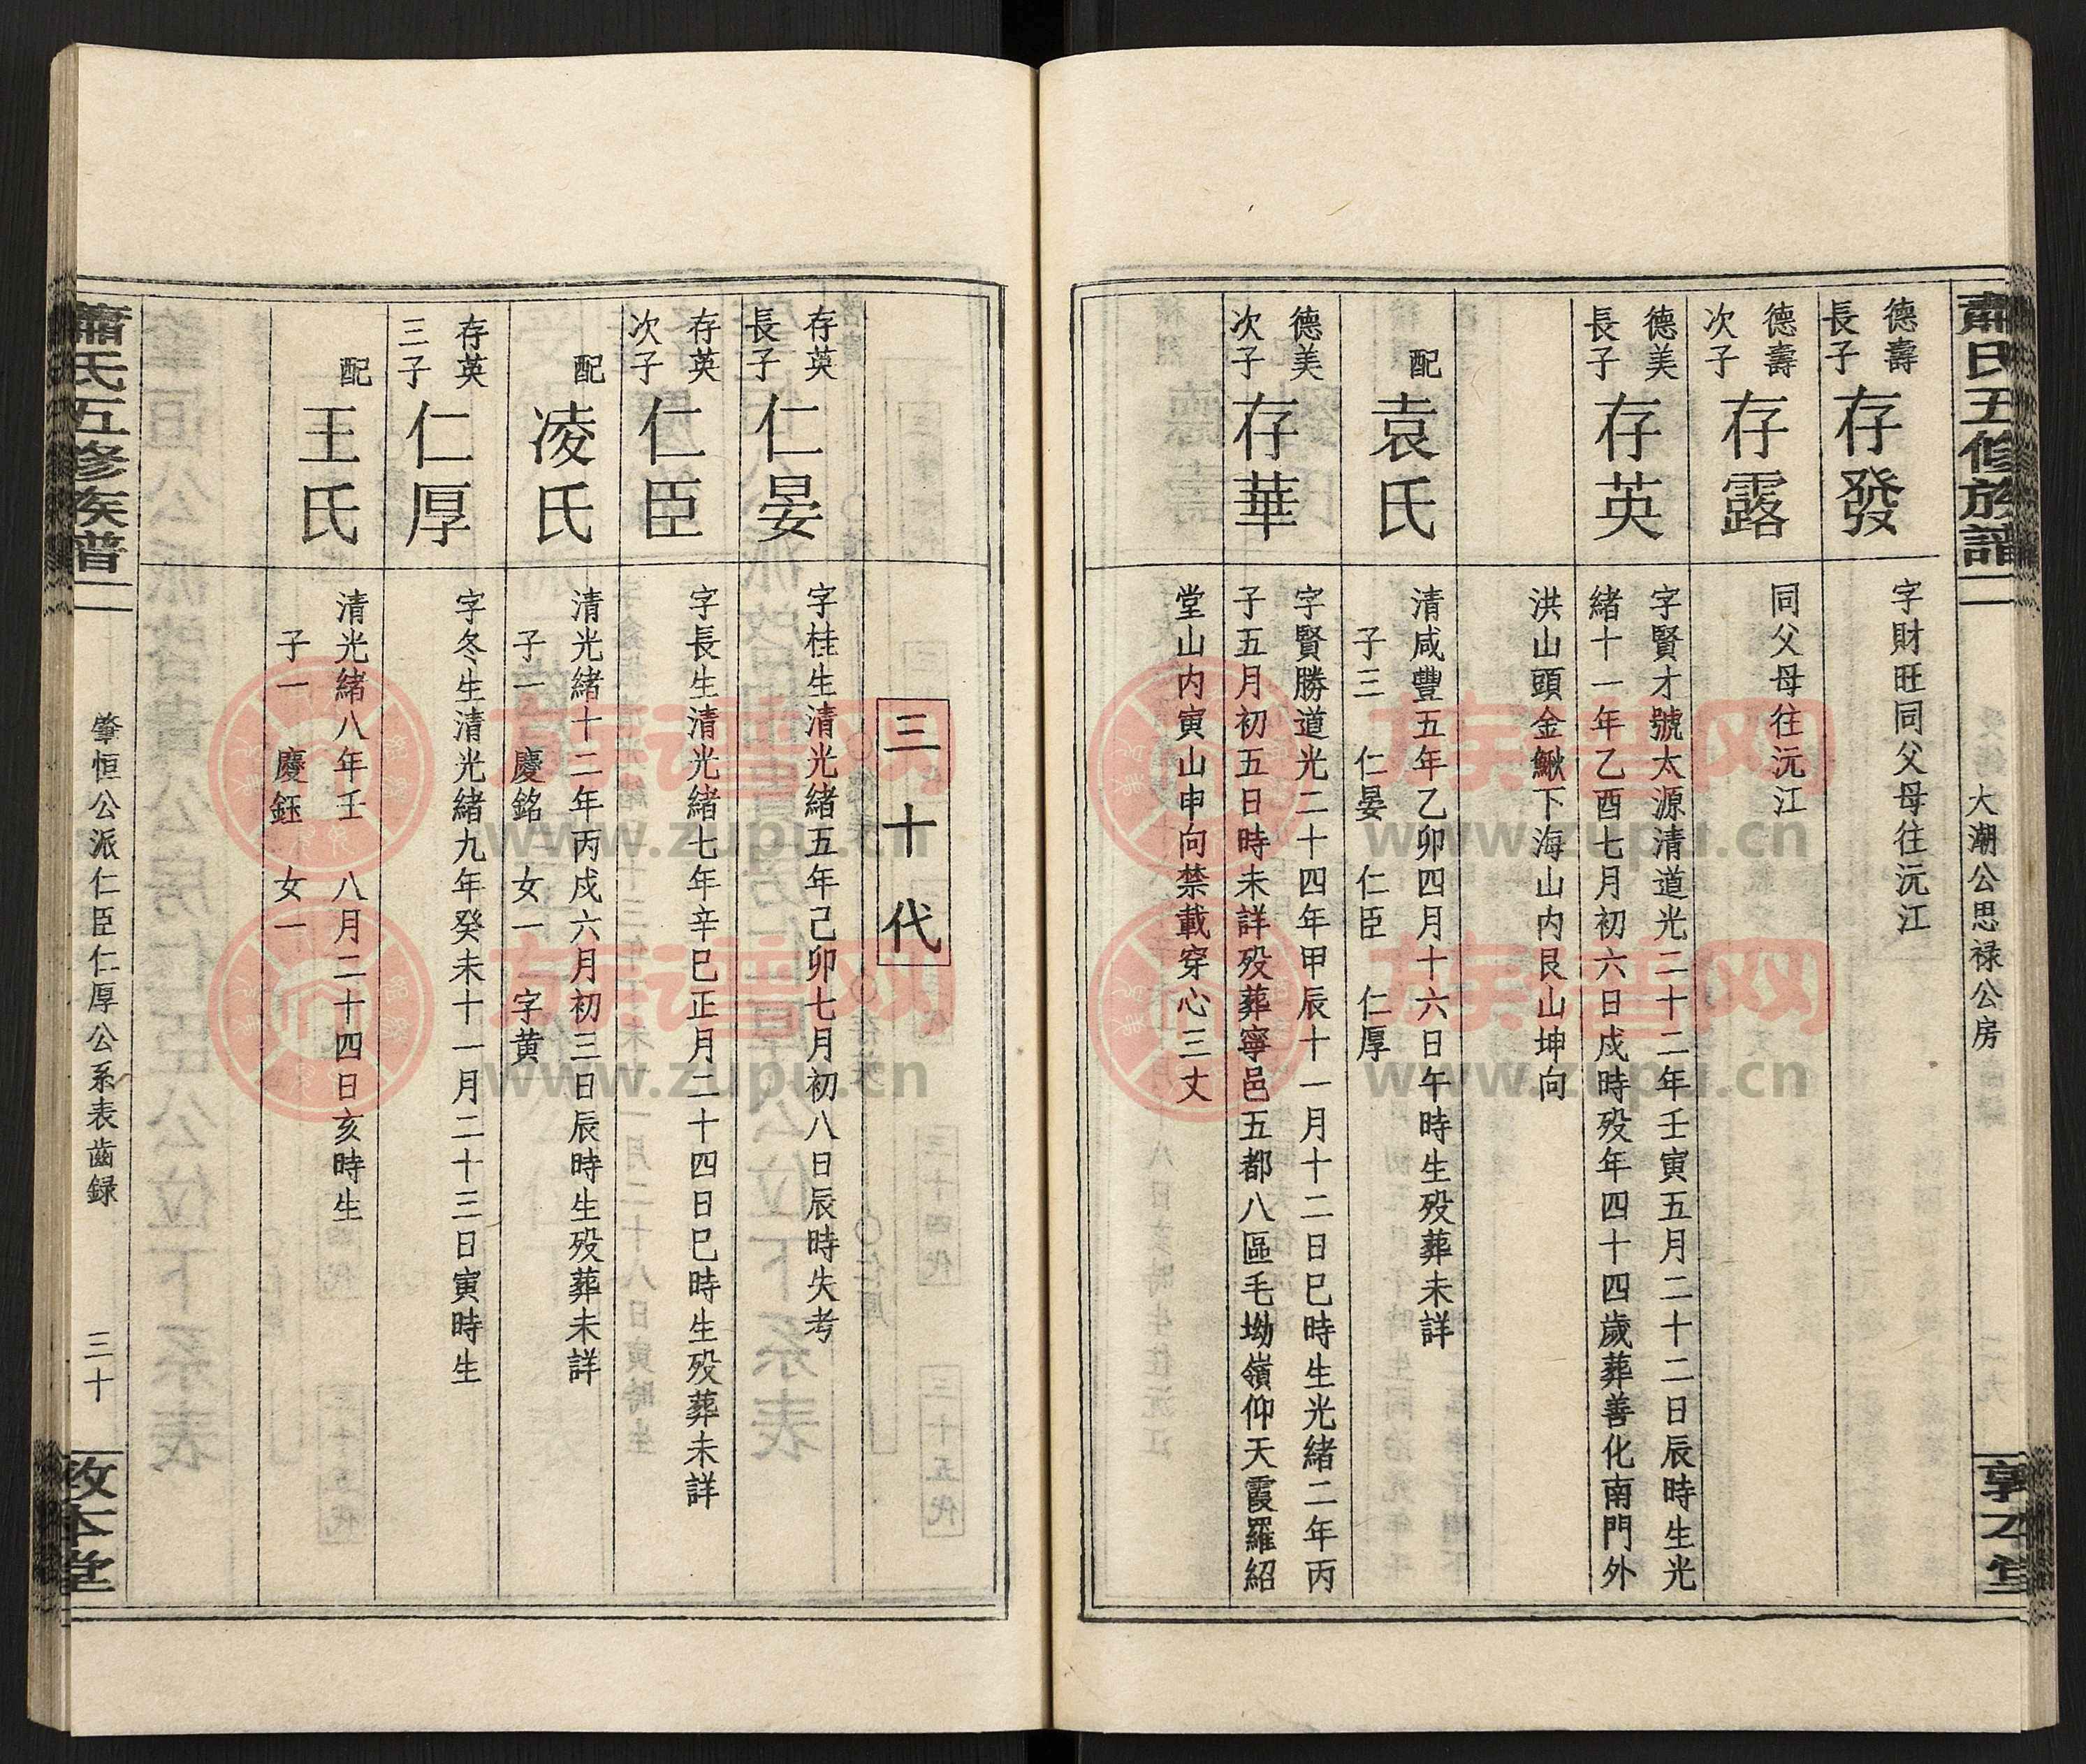 蕭氏五修族譜
大潮公思禄公房
德壽長子
存發
字財旺同父母往沅江
德壽次子
存露
同父母往沅江
德美長子
存英
字賢才號太源清道光二十二年壬寅五月二十二日辰時生光
緒十一年乙酉七月初六日戌時殁年四十四歲葬善化南門外
洪山頭金鰍下海山内艮山坤向
配
袁氏
清咸豐五年乙卯四月十六日午時生殁葬未詳
子三 仁晏 仁臣 仁厚
德美次子
存華
字賢勝道光二十四年甲辰十一月十二日巳時生光緒二年丙
子五月初五日時未詳殁葬寧邑五都八區毛坳嶺仰天霞羅紹
堂山内寅山申向禁載穿心三丈
三十代
存英長子
仁晏
字桂生清光緒五年己卯七月初八日辰時失考
存英次子
仁臣
字長生清光緒七年辛巳正月二十四日巳時生殁葬未詳
配
凌氏
清光緒十二年丙戌六月初三日辰時生殁葬未詳
子一 慶銘 女一 字黄
存英三子
仁厚
字冬生清光緒九年癸未十一月二十三日寅時生
配
王氏
清光緒八年壬 八月二十四日亥時生
子一 慶鈺 女一
蕭氏五修族譜
肇恒公派仁臣仁厚公系表齒録
三十
敦本堂
族谱网
www.zupu.cn
族谱网
www.zupu.cn
族谱网
www.zupu.cn
族谱网
www.zupu.cn